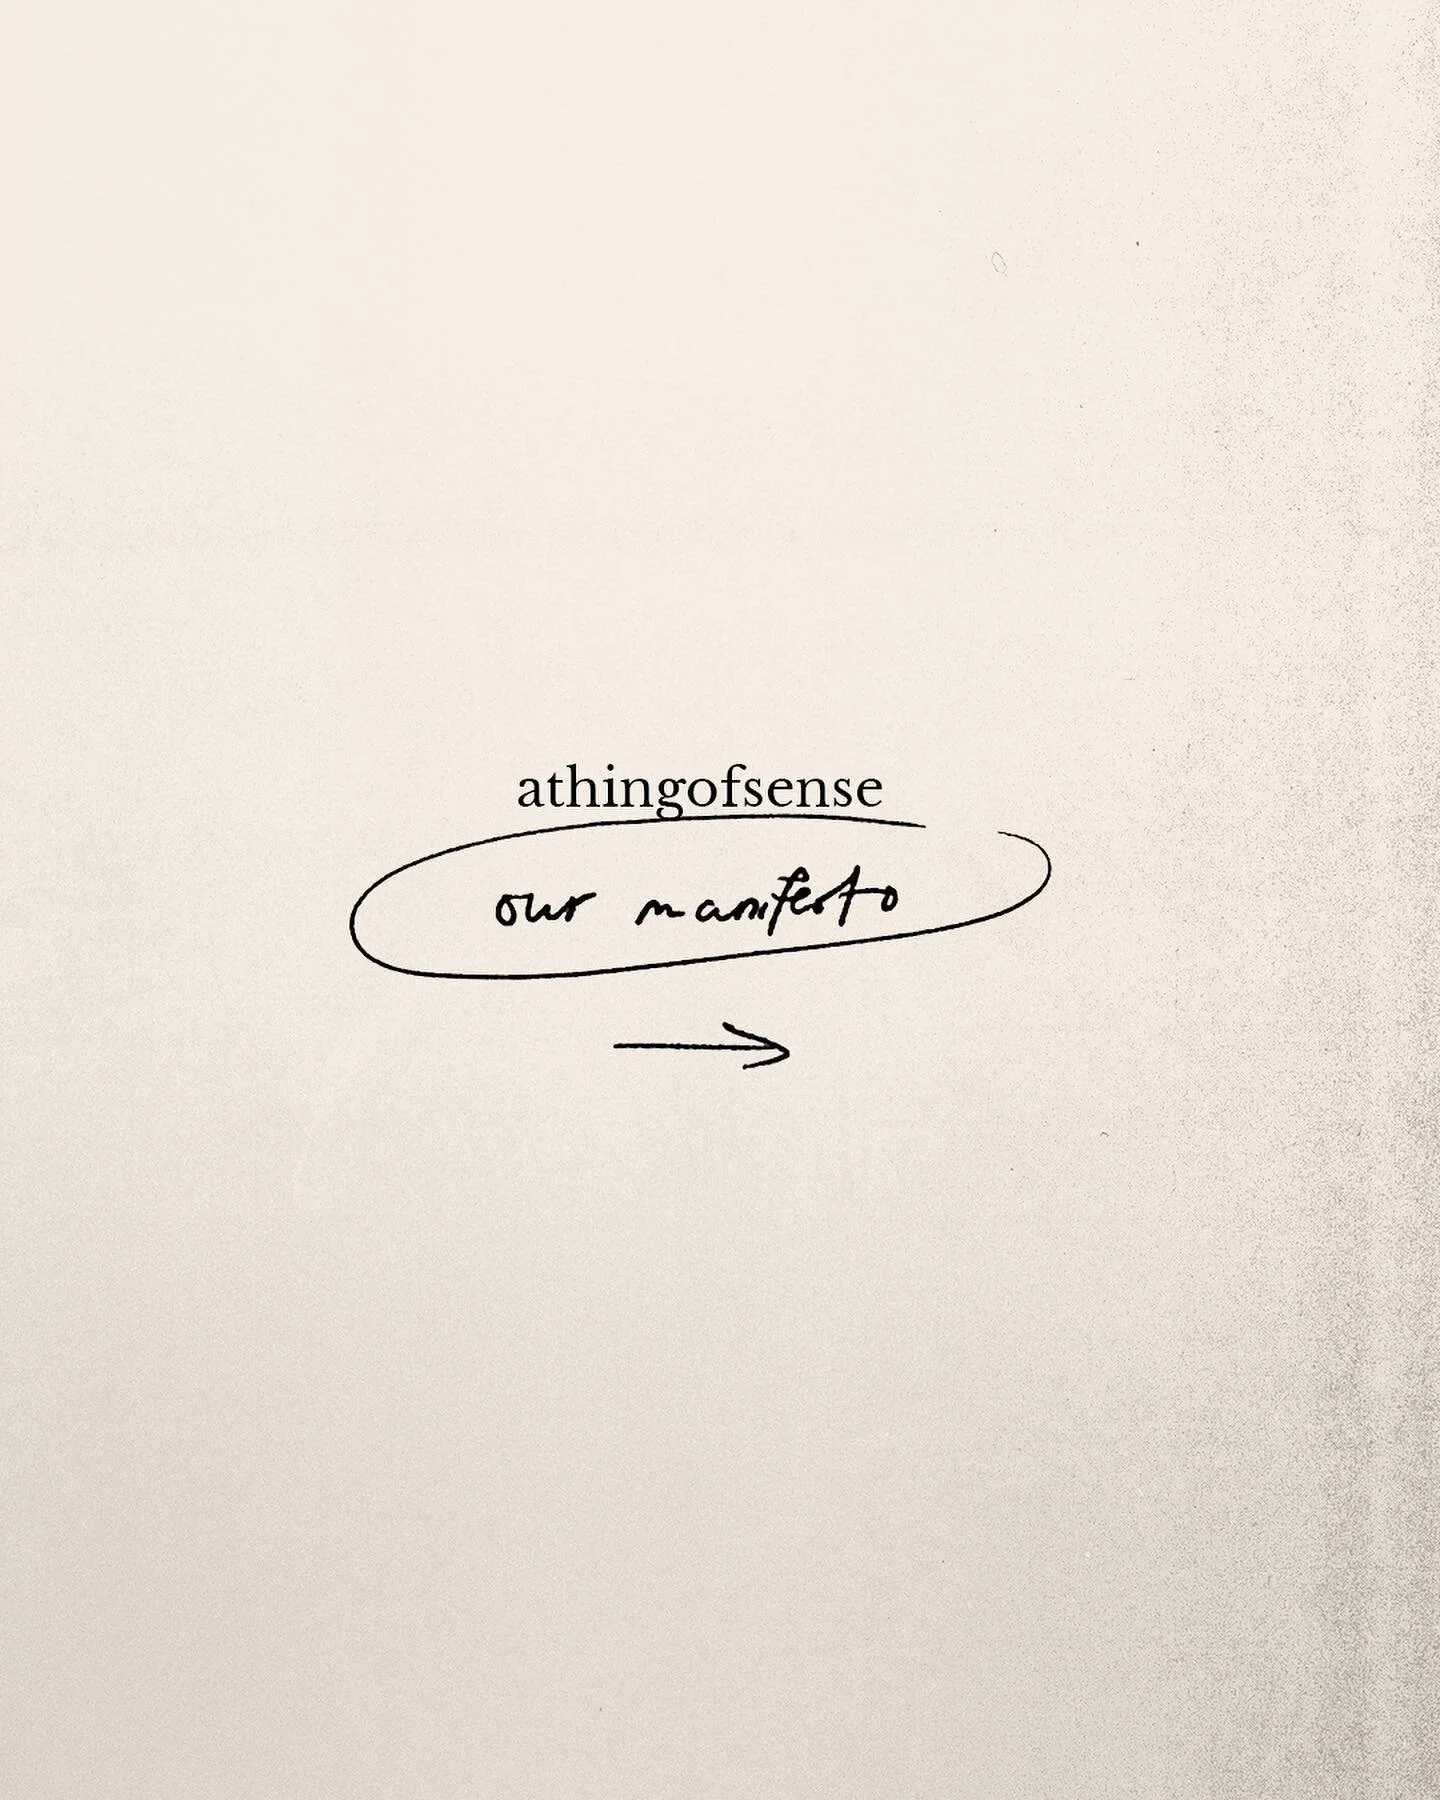 athingofsense
our manifesto